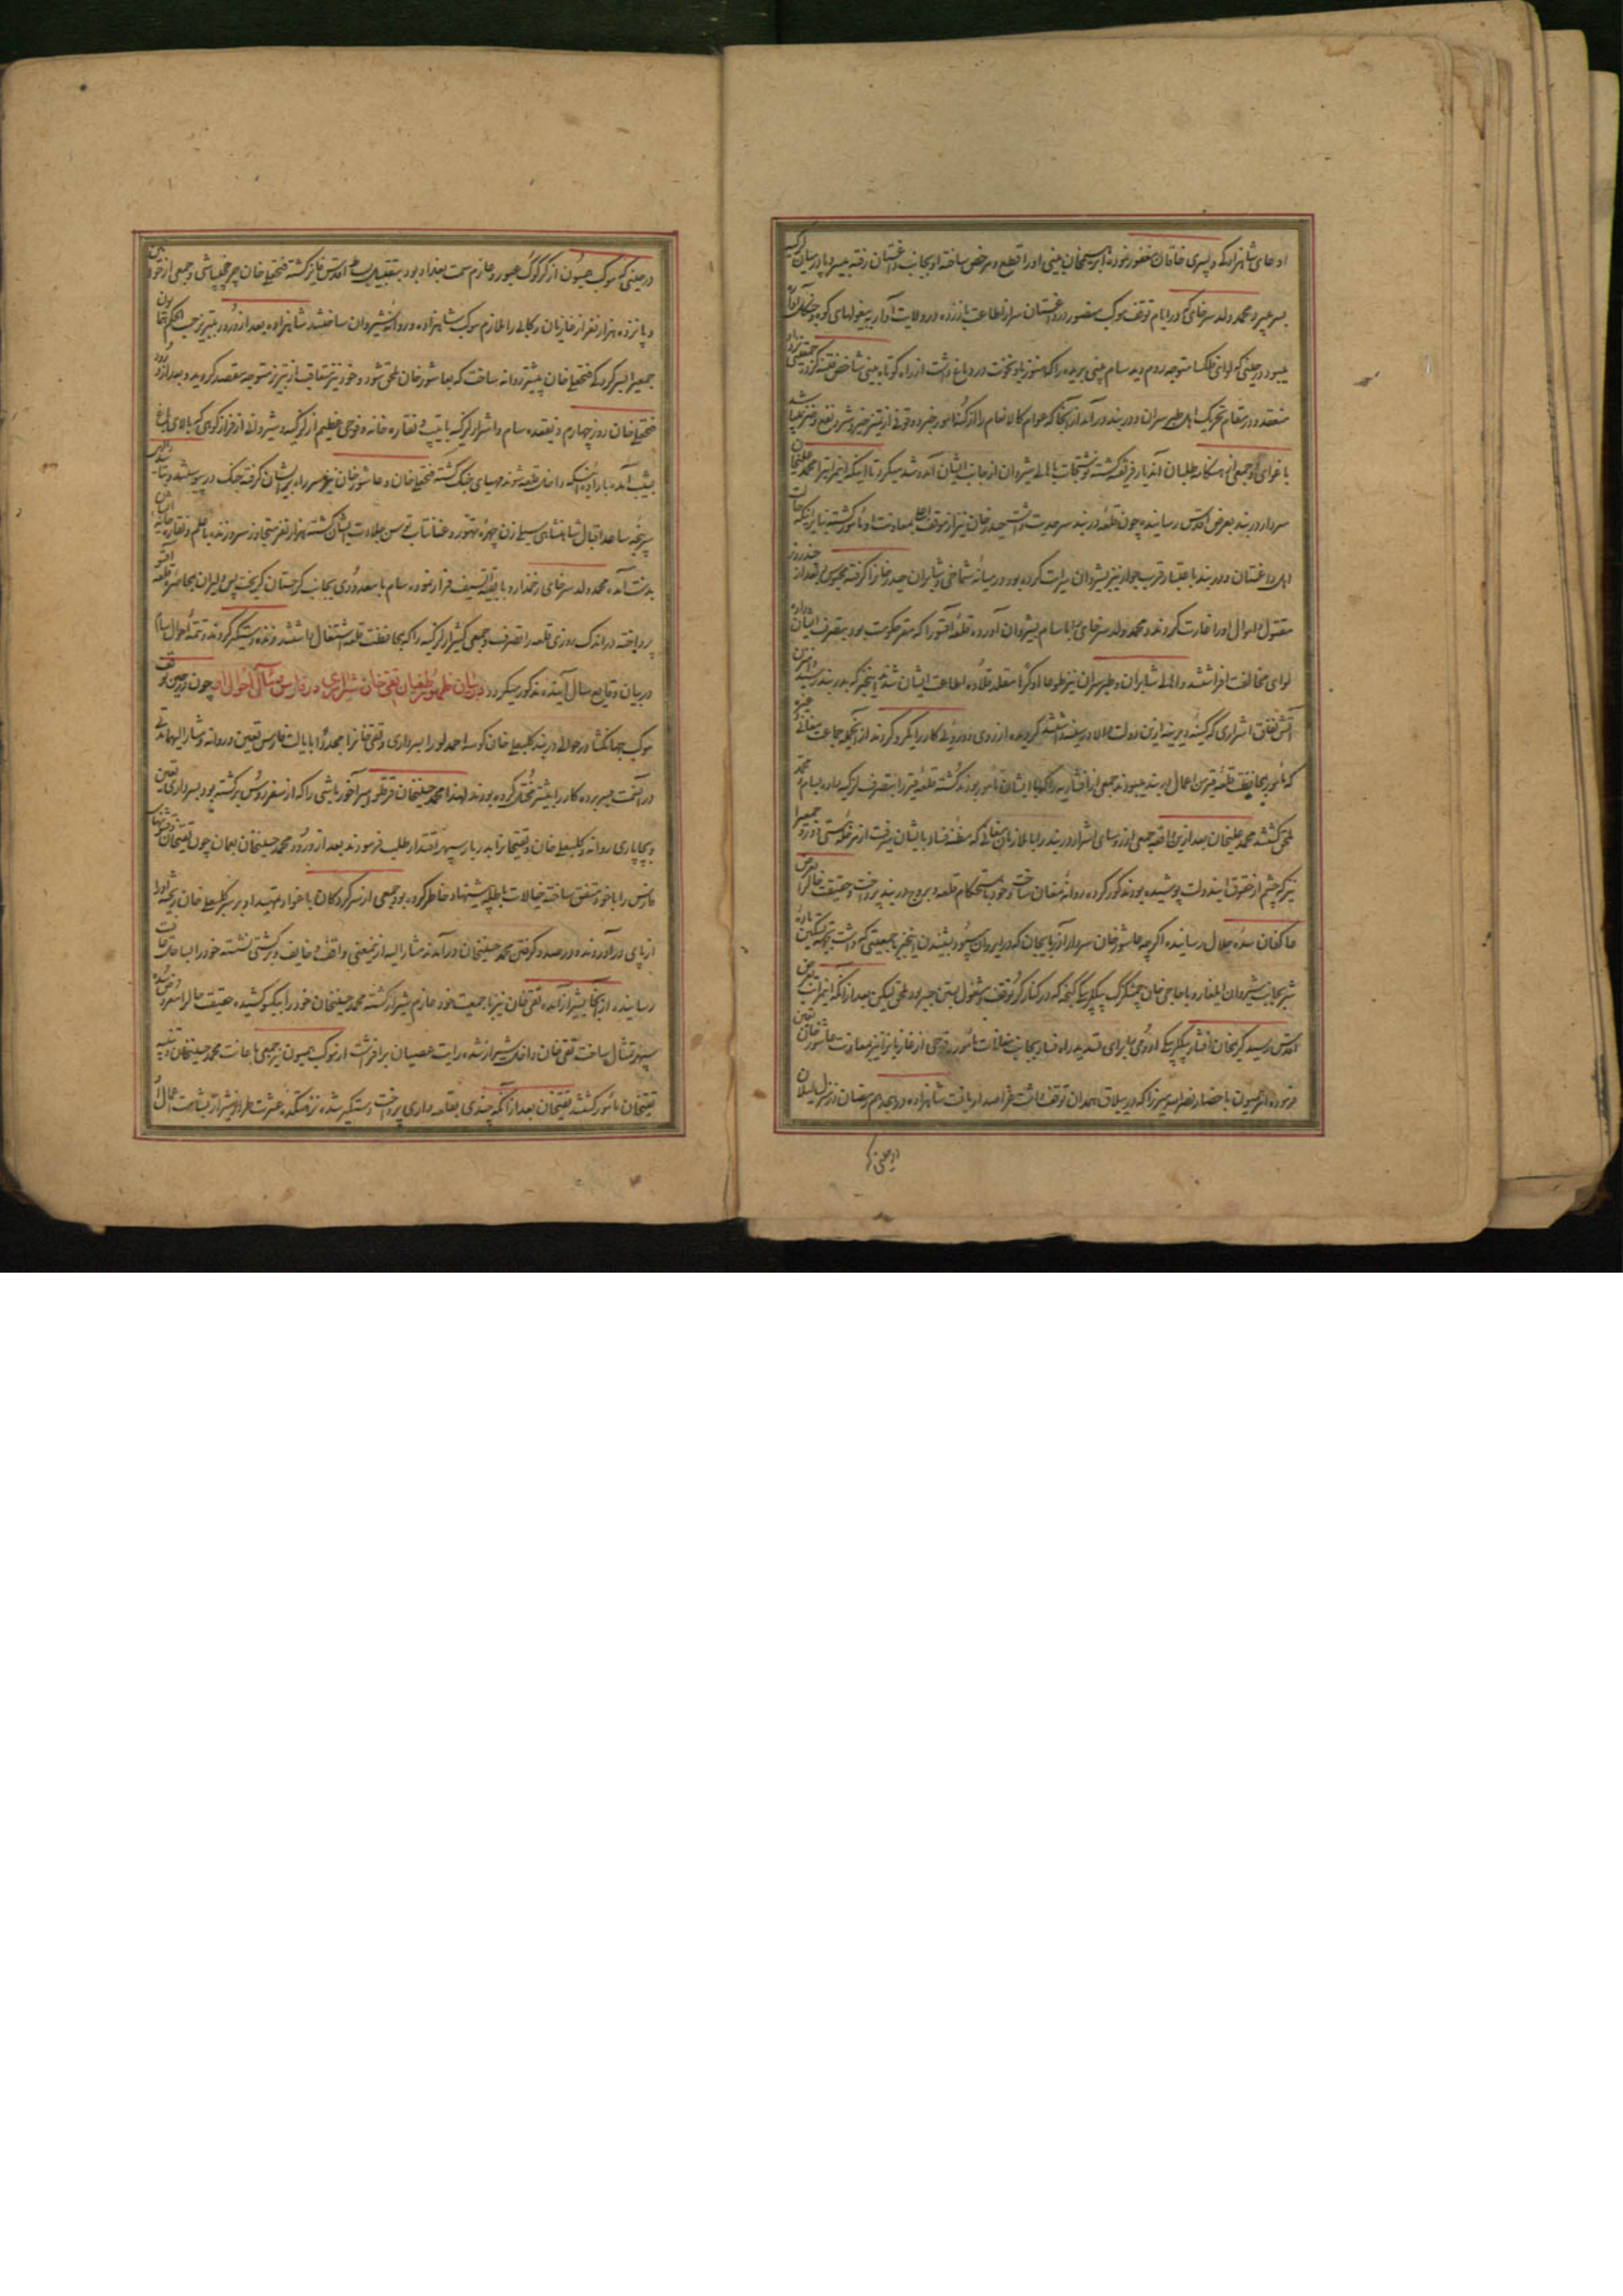 ادعای شاهزادکی و پسری خاقان مغفور نموده ابراهیمخان بینی او را قطع و مرخص ساخته او بجانب داغستان رفته بیسر و پا در میان لزکیه
بسر میبرد و محمد ولد سرخای که در ایام توقف موکب منصور در داغستان سر از اطاعت باز زده در ولایت آوار به بیغولهای کوه و جنگل
میبود در حینی که لوای فلکسا متوجه روم دید سام بینی بریده را که هنوز باد نخوت در دماغ داشت از راه کوتاه بینی شاخص فتنه کرده جمعیتی نزد او
منعقد و در مقام تحریک اهل طبرسران و دربند در آمد از آنجا که عوام کالانعام را از کنه امور خبر و قوه از تمیز خیر و شر و نفع و ضر نمیباشد
باغوای او جمعی از هنکامه طلبان آندیار فریفته گشته نوشتجات باهالی شیروان از جانب ایشان آمد و شد میکرد تا اینکه اینمراتب را محمد علیخان
سردار دربند بعرض اقدس رسانیده چون قلعه دربند سرحدیت داشت حیدر خان نیز از موقف اعلی بمعاونت او مأمور گشته بنا بر اینکه حرکات
اهل داغستان و دربند باعتبار قرب جوار نیز بشیروان سرایت کرده بود در میانه شماخی و شابران حیدر خانرا گرفته محبوس و بعد از چند روز
مقتول و اموال او را غارت کردند و محمد ولد سرخای با سام بشیروان آورده قلعه آقسو را که مقر حکومت بود بتصرف ایشان داده
لوای مخالفت افراشتند و اهالی شابران و طبرسران نیز طوعا او کرها متقلد قلاده اطاعت ایشان شدند اینخبر که بدربند رسید
آتش نفاق اشراری که کینه دیرینه ازین دولت والا در سینه داشتند از روی دورویی کار را یکرو کردند از آنجمله جماعت مغانی نیز
که مأمور بحافظت قلعه قبر من اعمال دربند میبودند جمعی از افشاریه را که با ایشان مأمور بودند کشته قلعه قبر را بتصرف لزکیه داده بسام و محمد
ملحق گشتند محمد علیخان بعد ازین واقعه جمعی از روسای اشرار دربند را با ملازمان مغانی که مظنه فساد بایشان میرفت از مرحله هستی دور و جمعیرا
نیز که چشم از حقوق ایندولت پوشیده بودند کور کرده روانه مغان ساخت و خود باستحکام قلعه و بروج دربند پرداخت و حقیقت حال را بعرض
عاکفان سده جلال رسانید اگر چه عاشور خان سردار آذربایجان که در ایروان میبود بشنیدن اینخبر با جمعیتی که داشت بجهة تسکین ماده
شر بجانب شیروان ایلغار و با حاجی خان چمشگزک بیکلربیکی گنجه که در کنار کر توقف و مشغول بستن جسر بود ملحق لیکن بعد از آنکه اینمراتب بعرض
اقدس رسید کریمخان افشار بیکلربیکی ارومی را برای تهدید راه فساد بجانب مغانات مأمور و فوجی از غازیانرا نیز معاونت عاشور خان تعیین
فرموده از همسون باحضار نصرالله میرزا که در ییلاق همدان توقف داشت فرمانصدار یافت شاهزاده در هجدهم رمضان در منزل لیلان
در حینی که
در حینی که موکب همیون از کرکوک عبور و عازم سمت بغداد بود بتقبیل بساط اقدس فایز گشته فتحعلیخان چرخچیباشی و جمعی از خوانین
و پانزده هزار نفر از غازیان رکابی را ملازم موکب شاهزاده و روانه شیروان ساختند شاهزاده بعد از ورود به تبریز حسب الحکم همایون
جمعیرا بسرکردکی فتحعلیخان پیشتر روانه ساخت که بعاشور خان ملحق شود و خود نیز متعاقب از تبریز متوجه مقصد گردید و بعد از ورود
فتحعلیخان روز چهارم ذیقعده سام و اشرار لزکیه با تیپ و نقاره خانه و فوجی عظیم از لزکیه و شیروانی از فراز کوهی که بالای باغ
بیشب آمده باراده اینکه داخل قلعه شوند مهیای جنگ گشته فتحعلیخان و عاشور خان نیز سر راه بر ایشان گرفته جنگ در پیوستند و بتأیید الهی
سرپنجه ساعد اقبال شاهنشاهی سیلی زن چهره تهور و عنانتاب توسن جلادت ایشان گشته هزار نفر متجاوز سر و زنده با علم و نقاره خانه ایشان
بدست آمده محمد ولد سرخای زخمدار و با بقیة السیف فرار نموده سام با معدودی بجانب گرجستان گریخت پس دلیران بمحاصره قلعه آقسو
پرداخته در اندک روزی قلعه را تصرف و جمعی کثیر از لزکیه را که بمحافظت قلعه اشتغال داشتند زنده دستگیر کردند و تتمه احوال سام
در بیان وقایع سال آینده مذکور میگردد در بیان ظهور طغیان تقی خان شیرازی در فارس و مآل احوال او چون در حین توقف
موکب جهانگشا در حوالی دربند کلبعلی خان کوسه احمدلو را بسرداری و تقی خانرا مجددا بایالت فارس تعیین و روانه و مشار الیهما مدتی
در آنسمت بسر برده کار را بیشتر مختل کرده بودند لهذا محمد حسینخان قرقلو میرآخور باشی را که از سفر روس برگشته بود بسرداری تعیین
و بچاپاری روانه و کلبعلیخان و تقیخانرا بدربار سپهر اقتدار طلب فرمودند بعد از ورود محمد حسینخان بعمان چون تقیخان قشونهای
فارس را با خود متفق ساخته خیالات باطله پیشنهاد خاطر کرده بود جمعی از سرکردکان باغوا و تمهید او بر سر کلبعلیخان ریخته او را
از پای در آوردند و در صدد گرفتن محمد حسینخان در آمدند مشار الیه از ینمعنی واقف و خایف و بکشتی نشسته خود را بساحل نجات
رسانید و از آنجا بشیراز آمده تقی خان نیز با جمعیت خود عازم شیراز گشته محمد حسینخان خود را بیکسو کشیده حقیقت حال را معروض سده
سپهر تمثال ساخت تقی خان داخل شیراز شده رایت عصیان بر افراشت از موکب همیون نیز جمعی باعانت محمد حسینخان و تنبیه
تقیخان مأمور گشتند تقیخان بعد از آنکه چندی بقلعه داری پرداخت دستگیر شد و نزهتکده عشرت طراز شیراز بشامت اعمال او